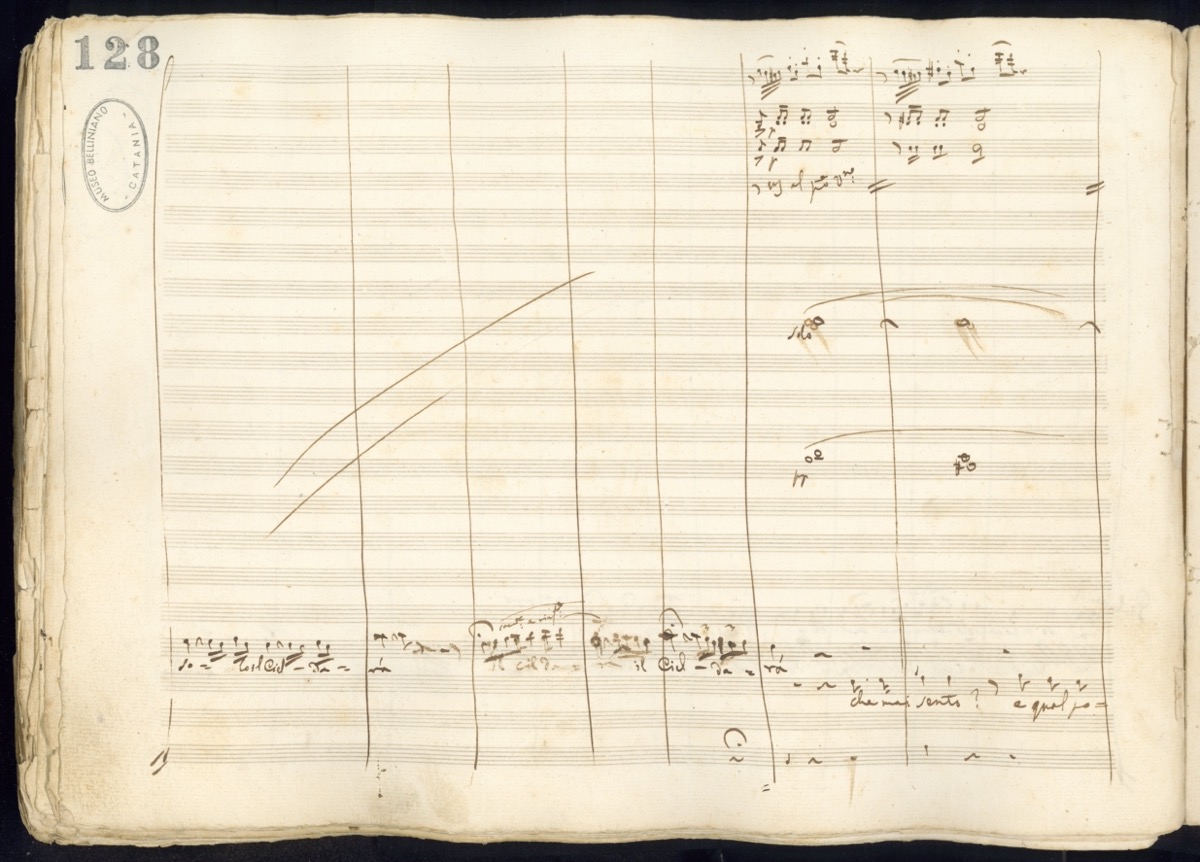 128
MUSEO BELLINIANO
- CATANIA -
solo
so = lo il Ciel - da = rà il Ciel da = il Ciel - da = rà
che mai sento? e qual po =